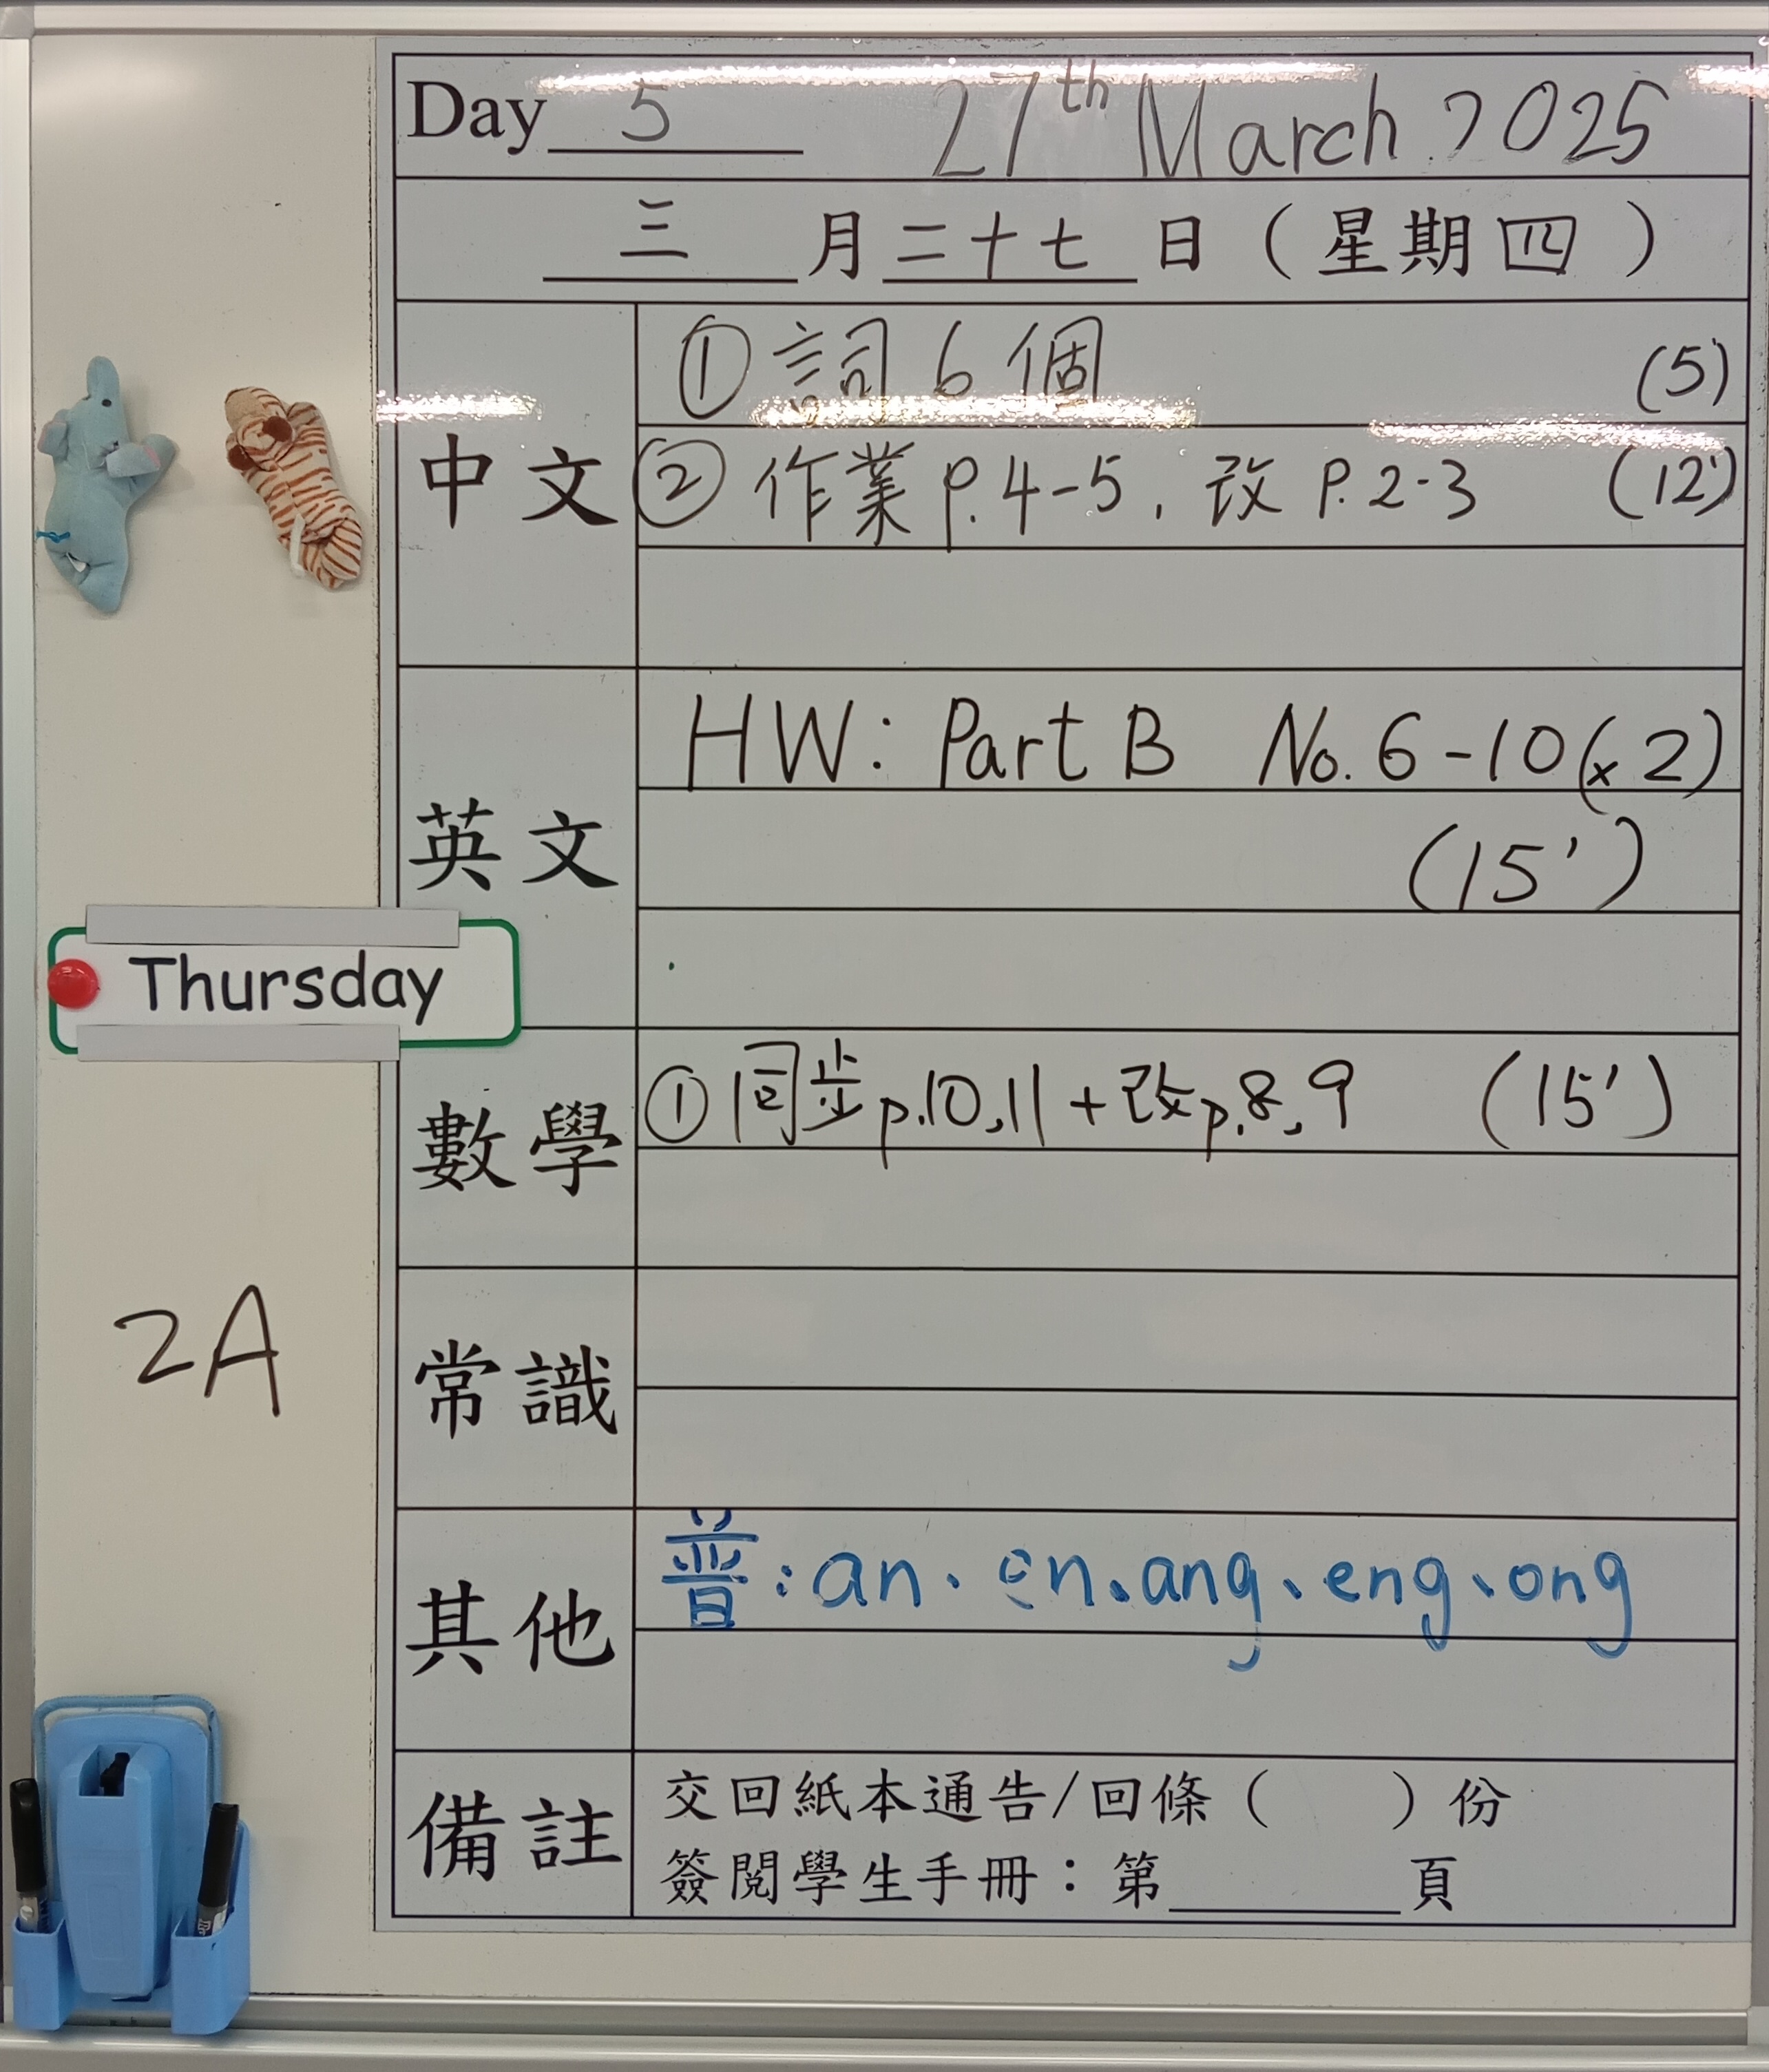 Day 5 27th March 2025
三 月 二十七 日 (星期四)
中文
① 詞 6 個 (5')
② 作業 p.4-5, 改 P.2-3 (12')
英文
HW: Part B No. 6-10 (x 2)
(15')
Thursday
數學
① 同步 p.10,11 + 改 p.8,9 (15')
2A
常識
其他
普:an、en、ang、eng、ong
備註
交回紙本通告/回條( )份
簽閱學生手冊:第______頁